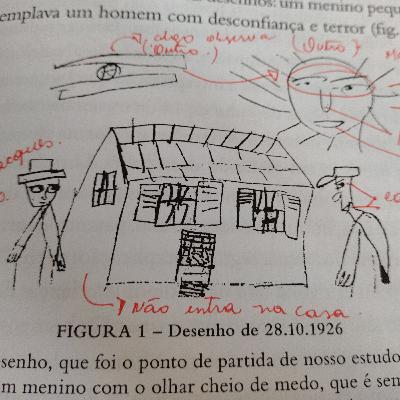 desenhos: um menino pequ
emplava um homem com desconfiança e terror (fig.
algo observa
(Outro.)
(Outro)
acques.
Não entra na casa.
FIGURA 1 – Desenho de 28.10.1926
esenho, que foi o ponto de partida de nosso estudo
m menino com o olhar cheio de medo, que é sem